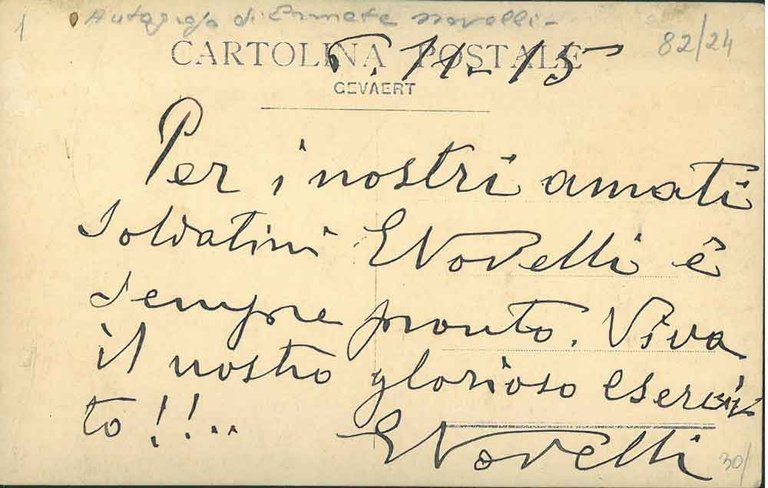 1 Autografo di Ermete Novelli -
82/24
CARTOLINA POSTALE
11-15
GEVAERT
Per i nostri amati
soldatini ENovelli è
sempre pronto. Viva
il nostro glorioso eserci
to!!..
ENovelli
30/